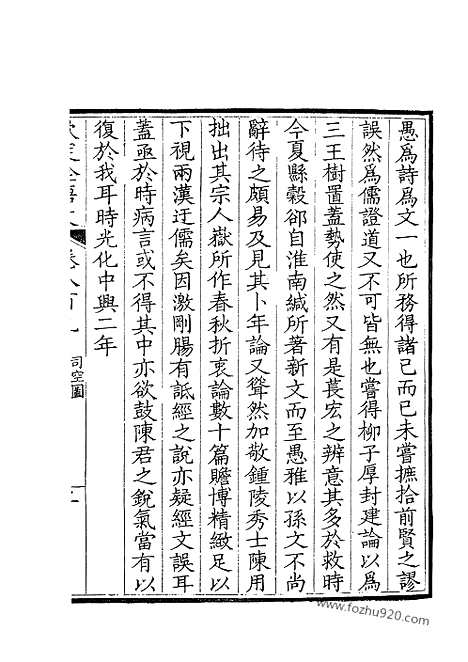 愚為詩為文一也所務得諸己而已未嘗摭拾前賢之謬
誤然為儒證道又不可皆無也嘗得柳子厚封建論以為
三王樹置蓋勢使之然又有是萇宏之辨意其多於救時
今夏縣穀郤自淮南緘所著新文而至愚雅以孫文不尚
辭待之頗易及見其卜年論又聳然加敬鍾陵秀士陳用
拙出其宗人嶽所作春秋折衷論數十篇贍博精緻足以
下視兩漢迂儒矣因激剛腸有詆經之說亦疑經文誤耳
蓋亟於時病言或不得其中亦欲鼓陳君之銳氣當有以
復於我耳時光化中興二年
欽定全唐文 卷八百九 司空圖
www.fozhu920.com